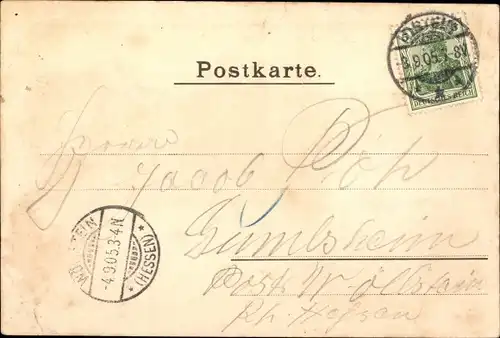 Postkarte.
DEUTSCHES REICH
3.9.05.
Herrn
Jacob
Gumbsheim
Post Wöllstein
Rh. Hessen
-4.9.05.3-4N
* (HESSEN) *